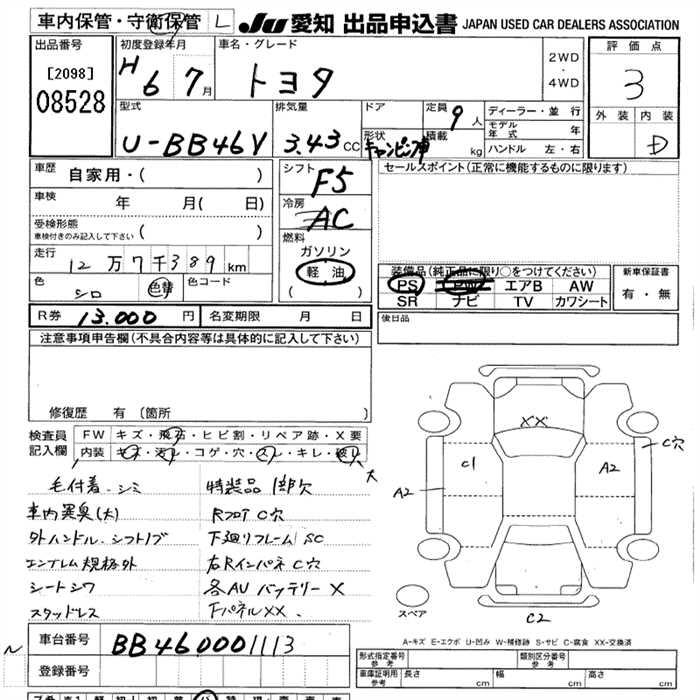 車内保管・守衛保管 L JU 愛知 出品申込書 JAPAN USED CAR DEALERS ASSOCIATION
出品番号
[2098]
08528
初度登録年月
H 6 7月
車名・グレード
トヨタ
2WD
・
4WD
評価点
3
外装 内装
D
型式
U-BB46V
排気量
3.43 CC
ドア
定員
9人
形状
キャンピング車
積載
kg
ディーラー・並行
モデル年式 年
ハンドル 左・右
車歴
自家用・( )
車検
年 月( 日)
受検形態
車検付きのみ記入して下さい ( )
走行
12万7千389km
色
シロ
色替
色コード
シフト
F5
冷房
AC
燃料
ガソリン
軽油
( )
セールスポイント(正常に機能するものに限ります)
装備品(純正品に限り○をつけてください)
PS PW エアB AW
SR ナビ TV カワシート
新車保証書
有・無
R券 13.000 円 名変期限 月 日
後日品
注意事項申告欄(不具合内容等は具体的に記入して下さい)
修復歴 有(箇所 )
検査員
記入欄
FW キズ・飛石・ヒビ割・リペア跡・X要
内装 キズ・汚レ・コゲ・穴・スレ・キレ・破レ 大
毛付着・シミ
車内異臭(大)
外ハンドル・シフトノブ
エンブレム規格外
シートシワ
スタッドレス
特装品1部欠
RフロアC穴
下廻りフレームSC
右RインパネC穴
各AVバッテリーX
FパネルXX.
XX
C1
A2
A2
C穴
C2
スペア
A-キズ E-エクボ U-凹み W-補修跡 S-サビ C-腐食 XX-交換済
車台番号 BB46-0001113
登録番号
形式指定番号
参考
類別区分番号
参考
車庫証明用
参考
長さ cm 幅 cm 高さ cm